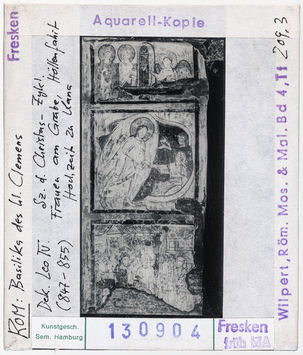 Aquarell-Kopie
Fresken
ROM: Basilika des hl. Clemens
Dek. Leo IV.
(847-855)
Sz. d. Christus-Zykl.
Frauen am Grabe, Höllenfahrt
Hochzeit zu Kana
Wilpert, Röm. Mos. & Mal. Bd 4, Tf
209,3
Kunstgesch.
Sem. Hamburg
130904
Fresken
früh MA